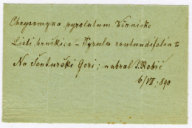 Chrysomyxa pyrolatum. Winnecki
Listi hruškice - Pyrola rotundifolia L
Na Šenturški Gori; nabral S. Robič
6/VI. 890